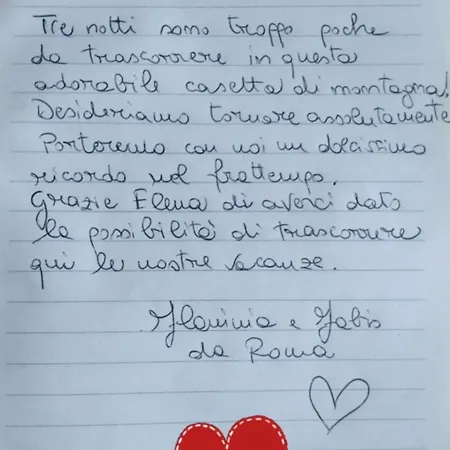 Tre notti sono troppo poche
da trascorrere in questa
adorabile casetta di montagna!
Desideriamo tornare assolutamente
Porteremo con noi un dolcissimo
ricordo nel frattempo.
Grazie Elena di averci dato
la possibilità di trascorrere
qui le nostre vacanze.
Flaminia e Fabio
da Roma